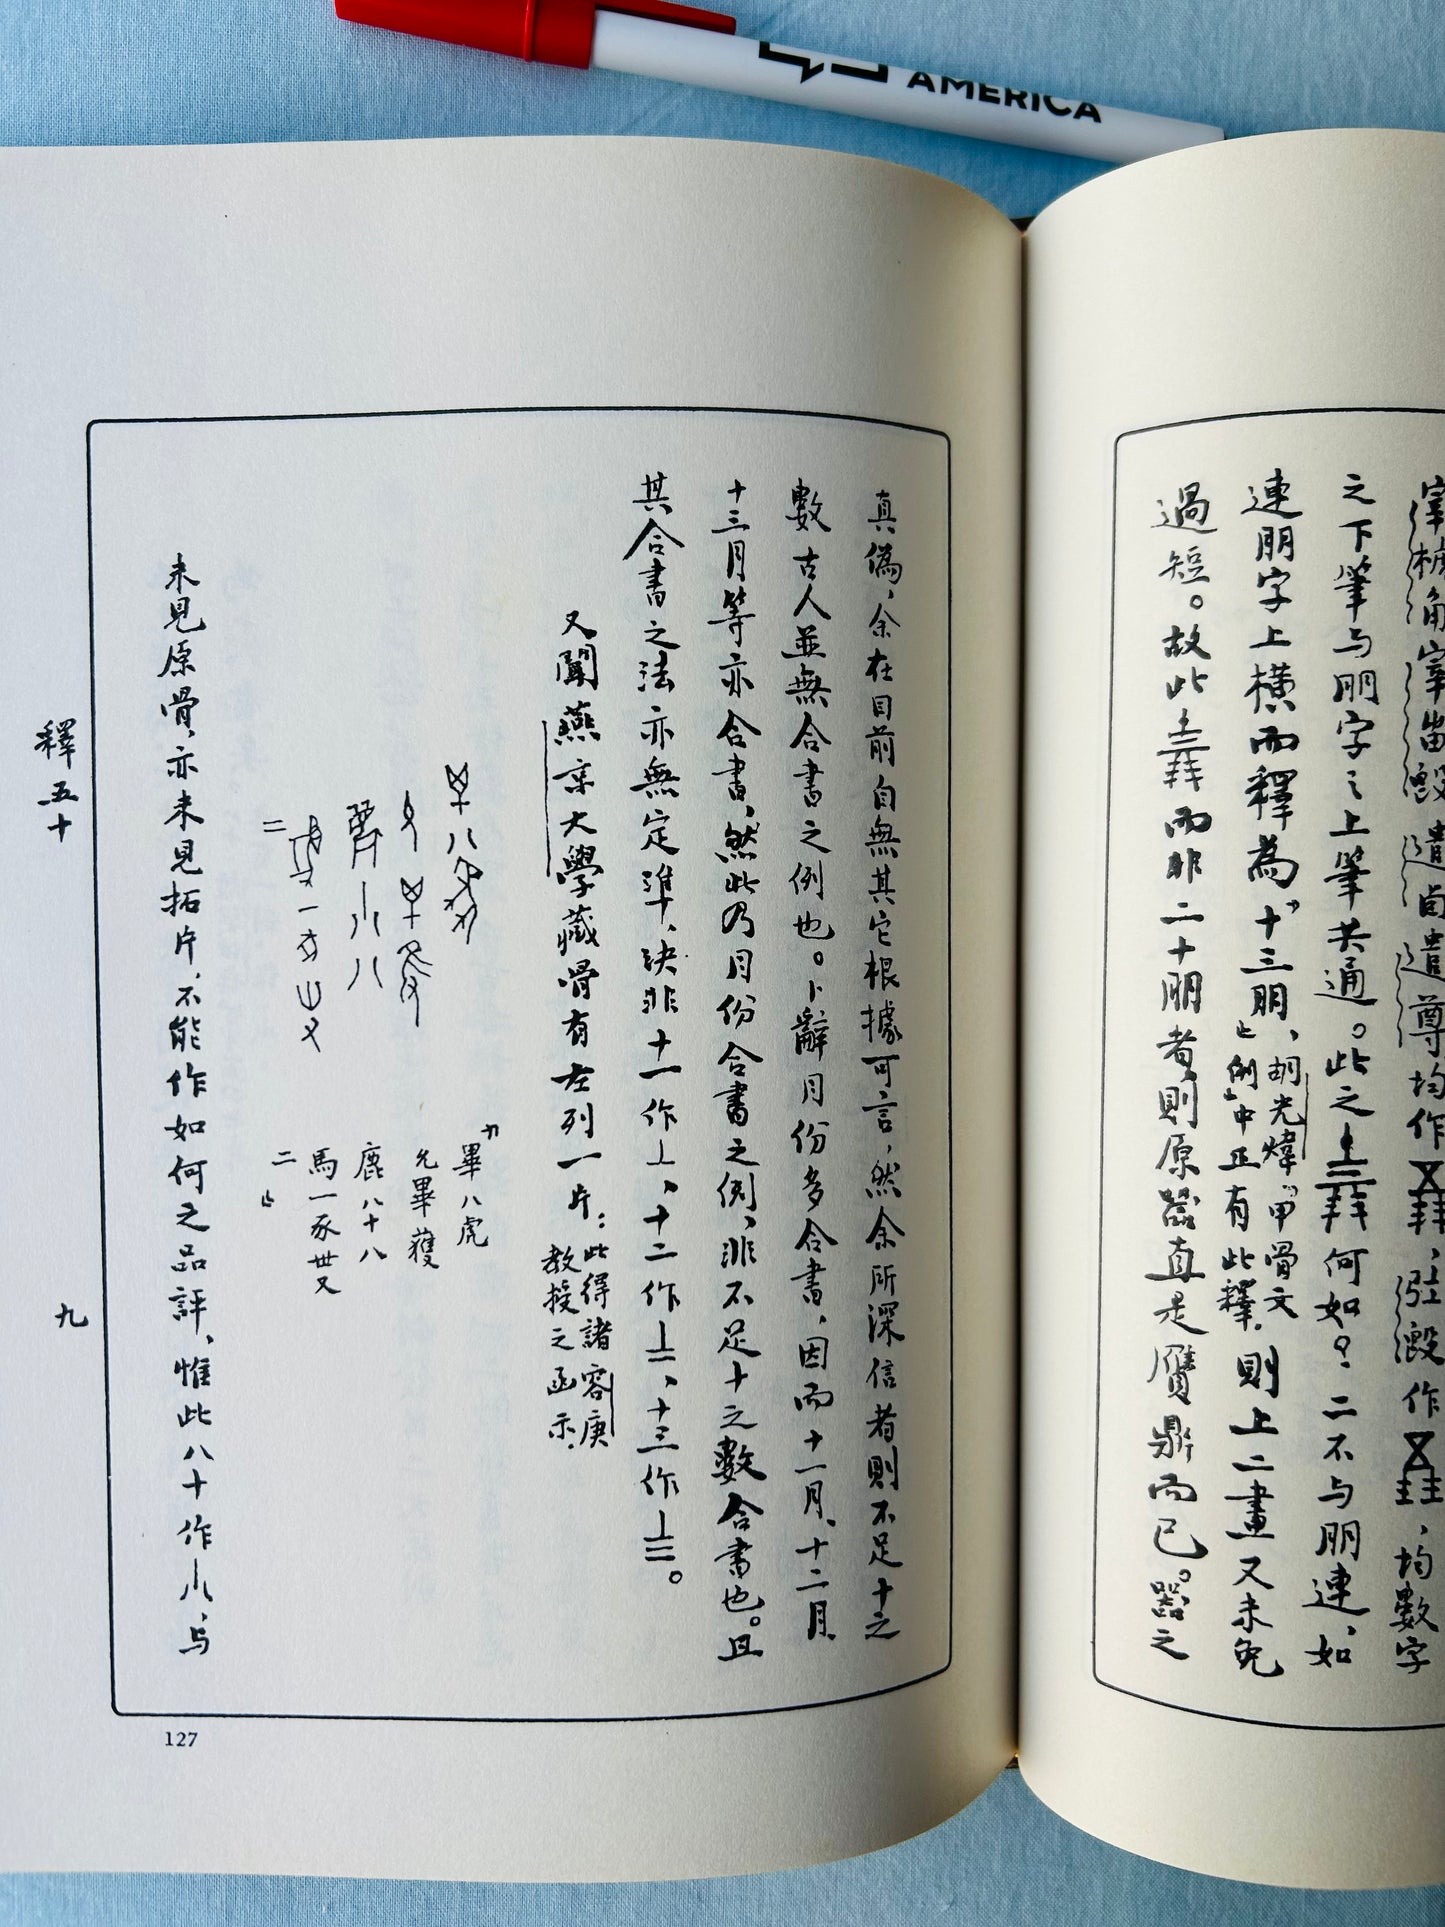 AMERICA
宰椃角宰甾毁遣卣遣尊均作,毁作,均數字
之下筆与朋字之上筆共通。此之何如?二不与朋連,如
連朋字上橫而釋為「十三朋」,胡光煒「甲骨文例」中正有此釋.則上二畫又未免
過短。故此而非二十朋者,則原器直是贋鼎而已。器之
真偽,余在目前自無其它根據可言,然余所深信者則不足十之
數古人並無合書之例也。卜辭月份多合書,因而十一月、十二月、
十三月等亦合書,然此乃月份合書之例,非不足十之數合書也。且
其合書之法亦無定準,決非十一作⊥,十二作,十三作。
又聞燕京大學藏骨有左列一片:此得諸容庚教授之函示.
「畢八虎
允畢獲
鹿八十八
馬一豕卅又
二」
未見原骨,亦未見拓片,不能作如何之品評,惟此八十作,与
釋五十
九
127